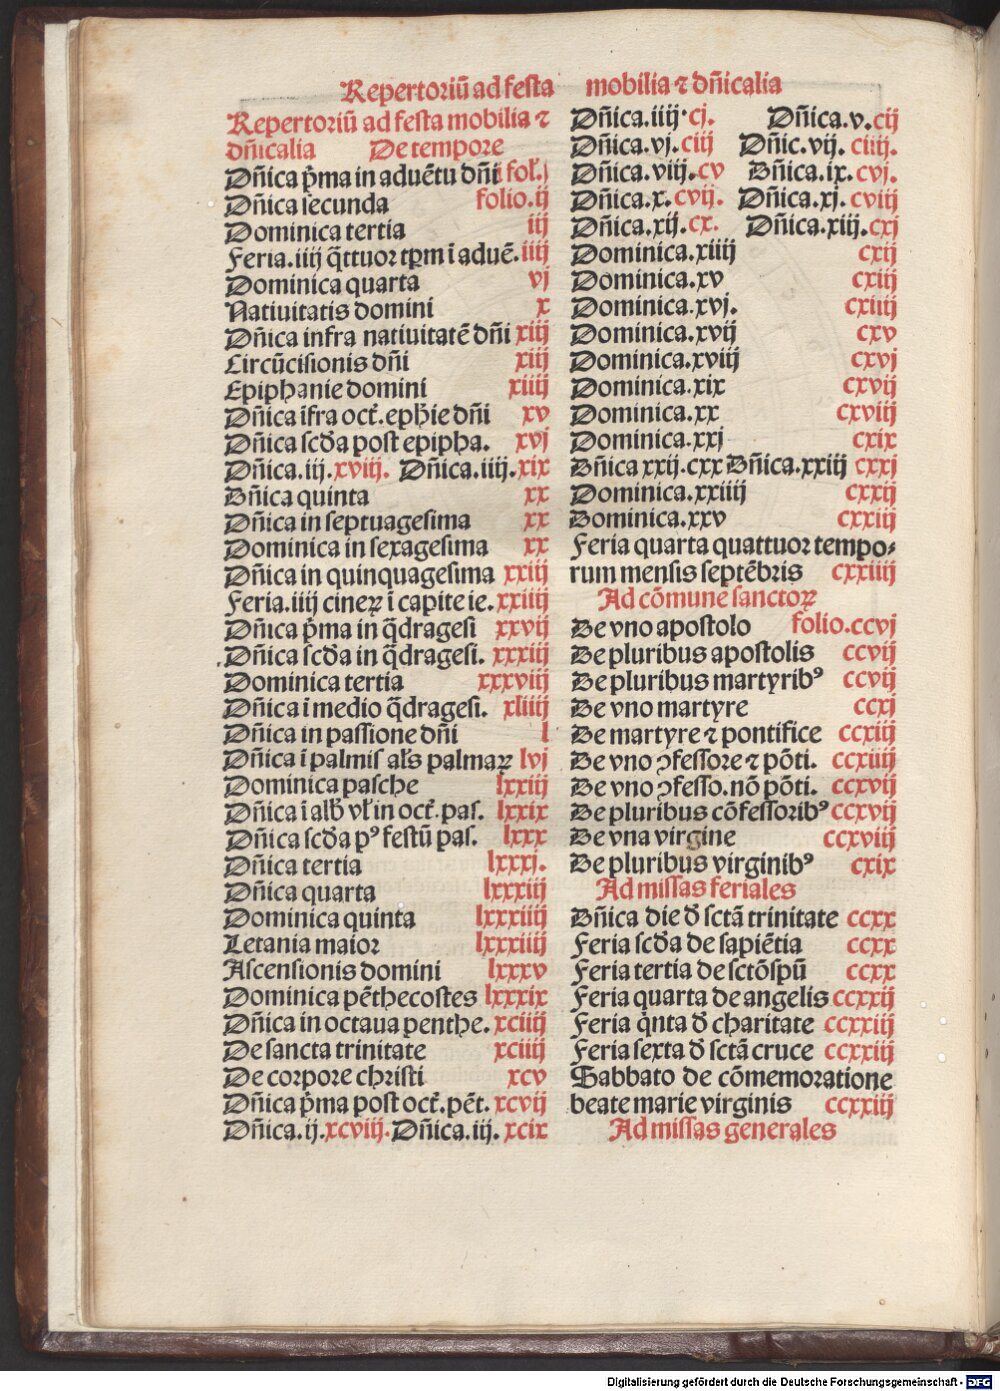 Repertoriū ad festa mobilia ⁊ dñicalia
Repertoriū ad festa mobilia ⁊
dñicalia De tempore
Dñica p̄ma in aduētu dñi fol.j
Dñica secunda folio.ij
Dominica tertia iij
Feria.iiij q̄ttuor tꝑm ī aduē.iiij
Dominica quarta vj
Natiuitatis domini x
Dñica infra natiuitatē dñi xiij
Circūcisionis dñi xiij
Epiphanie domini xiiij
Dñica ifra oct̄.ephie dñi xv
Dñica scd̄a post epipha. xvj
Dñica.iij.xviij. Dñica.iiij.xix
Dñica quinta xx
Dñica in septuagesima xx
Dominica in sexagesima xx
Dñica in quinquagesima xxiij
Feria.iiij cineꝝ ī capite ie.xxiiij
Dñica p̄ma in q̄dragesi xxvij
Dñica scd̄a in q̄dragesi. xxxiij
Dominica tertia xxxviij
Dñica ī medio q̄dragesi. xliiij
Dñica in passione dñi l
Dñica ī palmis al's palmaꝝ lvj
Dominica pasche lxxiij
Dñica ī alb̄ vl' in oct̄.pas. lxxix
Dñica scd̄a pꝰ festū pas. lxxx
Dñica tertia lxxxj.
Dñica quarta lxxxiij
Dominica quinta lxxxiiij
Letania maior lxxxiiij
Ascensionis domini lxxxv
Dominica pēthecostes lxxxix
Dñica in octaua penthe.xciiij
De sancta trinitate xciiij
De corpore christi xcv
Dñica p̄ma post oct̄.pēt.xcvij
Dñica.ij.xcviij.Dñica.iij. xcix
Dñica.iiij.cj. Dñica.v.cij
Dñica.vj.ciij Dñic.vij. ciiij.
Dñica.viij.cv Dñica.ix.cvj.
Dñica.x.cvij. Dñica.xj.cviij
Dñica.xij.cx. Dñica.xiij.cxj
Dominica.xiiij cxij
Dominica.xv cxiij
Dominica.xvj. cxiiij
Dominica.xvij cxv
Dominica.xviij cxvj
Dominica.xix cxvij
Dominica.xx cxviij
Dominica.xxj cxix
Dñica xxij.cxx Dñica.xxiij cxxj
Dominica.xxiiij cxxij
Dominica.xxv cxxiij
Feria quarta quattuor tempo⸗
rum mensis septēbris cxxiiij
Ad cōmune sanctoꝝ
De vno apostolo folio.ccvj
De pluribus apostolis ccvij
De pluribus martyribꝰ ccvij
De vno martyre ccxj
De martyre ⁊ pontifice ccxiij
De vno ꝯfessore ⁊ pōti. ccxiiij
De vno ꝯfesso.nō pōti. ccxvij
De pluribus cōfessoribꝰ ccxvij
De vna virgine ccxviij
De pluribus virginibꝰ cxix
Ad missas feriales
Dñica die d̄ sctā trinitate ccxx
Feria scd̄a de sapiētia ccxx
Feria tertia de sctōspū ccxx
Feria quarta de angelis ccxxij
Feria q̇nta d̄ charitate ccxxiij
Feria sexta d̄ sctā cruce ccxxiij
Sabbato de cōmemoratione
beate marie virginis ccxxiij
Ad missas generales
Digitalisierung gefördert durch die Deutsche Forschungsgemeinschaft - DFG